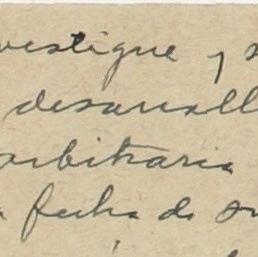 vestigue y s
desarroll
arbitraria
fecha de su